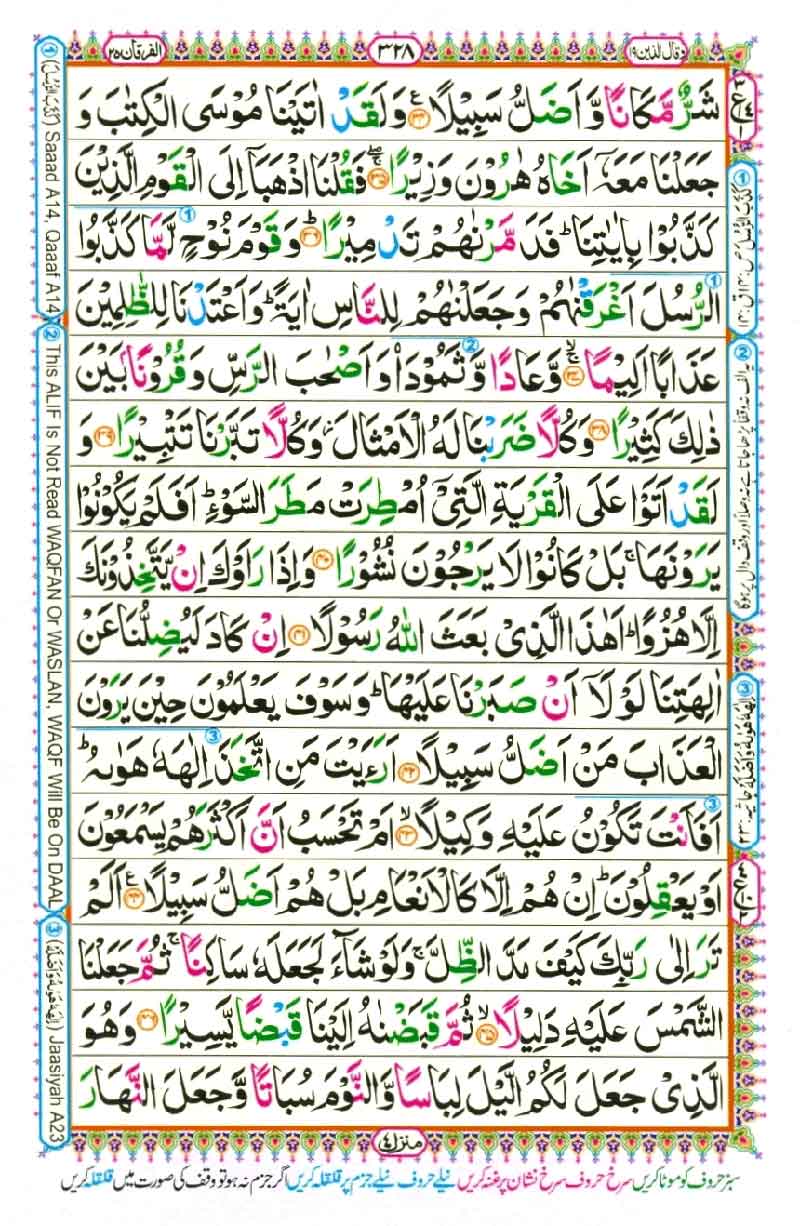 وقال الذین ١٩
٣٢٨
الفرقان ٢٥
شَرٌّ مَّكَانًا وَّاَضَلُّ سَبِیْلًا ۧ﴿٣٤﴾ وَلَقَدْ اٰتَیْنَا مُوْسَی الْكِتٰبَ وَ
جَعَلْنَا مَعَهٗۤ اَخَاهُ هٰرُوْنَ وَزِیْرًا ۚۖ﴿٣٥﴾ فَقُلْنَا اذْهَبَاۤ اِلَی الْقَوْمِ الَّذِیْنَ
كَذَّبُوْا بِاٰیٰتِنَا ؕ فَدَمَّرْنٰهُمْ تَدْمِیْرًا ؕ﴿٣٦﴾ وَقَوْمَ نُوْحٍ لَّمَّا كَذَّبُوا
الرُّسُلَ اَغْرَقْنٰهُمْ وَجَعَلْنٰهُمْ لِلنَّاسِ اٰیَةً ؕ وَاَعْتَدْنَا لِلظّٰلِمِیْنَ
عَذَابًا اَلِیْمًا ۚۖ﴿٣٧﴾ وَّعَادًا وَّثَمُوْدَا۠ وَاَصْحٰبَ الرَّسِّ وَقُرُوْنًۢا بَیْنَ
ذٰلِكَ كَثِیْرًا ﴿٣٨﴾ وَكُلًّا ضَرَبْنَا لَهُ الْاَمْثَالَ ؗ وَكُلًّا تَبَّرْنَا تَتْبِیْرًا ﴿٣٩﴾ وَ
لَقَدْ اَتَوْا عَلَی الْقَرْیَةِ الَّتِیْۤ اُمْطِرَتْ مَطَرَ السَّوْءِ ؕ اَفَلَمْ یَكُوْنُوْا
یَرَوْنَهَا ۚ بَلْ كَانُوْا لَا یَرْجُوْنَ نُشُوْرًا ﴿٤٠﴾ وَاِذَا رَاَوْكَ اِنْ یَّتَّخِذُوْنَكَ
اِلَّا هُزُوًا ؕ اَهٰذَا الَّذِیْ بَعَثَ اللّٰهُ رَسُوْلًا ﴿٤١﴾ اِنْ كَادَ لَیُضِلُّنَا عَنْ
اٰلِهَتِنَا لَوْلَاۤ اَنْ صَبَرْنَا عَلَیْهَا ؕ وَسَوْفَ یَعْلَمُوْنَ حِیْنَ یَرَوْنَ
الْعَذَابَ مَنْ اَضَلُّ سَبِیْلًا ﴿٤٢﴾ اَرَءَیْتَ مَنِ اتَّخَذَ اِلٰهَهٗ هَوٰىهُ ؕ
اَفَاَنْتَ تَكُوْنُ عَلَیْهِ وَكِیْلًا ۙ﴿٤٣﴾ اَمْ تَحْسَبُ اَنَّ اَكْثَرَهُمْ یَسْمَعُوْنَ
اَوْ یَعْقِلُوْنَ ؕ اِنْ هُمْ اِلَّا كَالْاَنْعَامِ بَلْ هُمْ اَضَلُّ سَبِیْلًا ۧ﴿٤٤﴾ اَلَمْ
تَرَ اِلٰی رَبِّكَ كَیْفَ مَدَّ الظِّلَّ ۚ وَلَوْ شَآءَ لَجَعَلَهٗ سَاكِنًا ۚ ثُمَّ جَعَلْنَا
الشَّمْسَ عَلَیْهِ دَلِیْلًا ۙ﴿٤٥﴾ ثُمَّ قَبَضْنٰهُ اِلَیْنَا قَبْضًا یَّسِیْرًا ﴿٤٦﴾ وَهُوَ
الَّذِیْ جَعَلَ لَكُمُ الَّیْلَ لِبَاسًا وَّالنَّوْمَ سُبَاتًا وَّجَعَلَ النَّهَارَ
منزل ٤
سبز حروف کو موٹا کریں سرخ حروف سرخ نشان پر غنہ کریں نیلے حروف نیلے جزم پر قلقلہ کریں اگر جزم نہ ہو تو وقف کی صورت میں قلقلہ کریں
① (كَذَّبَ الرُّسُلَ) Saaad A14, Qaaaf A14
② This ALIF Is Not Read WAQFAN Or WASLAN, WAQF Will Be On DAAL
③ (اِلٰهَهٗ هَوٰىهُ وَاَضَلَّهُ) Jaasiyah A23